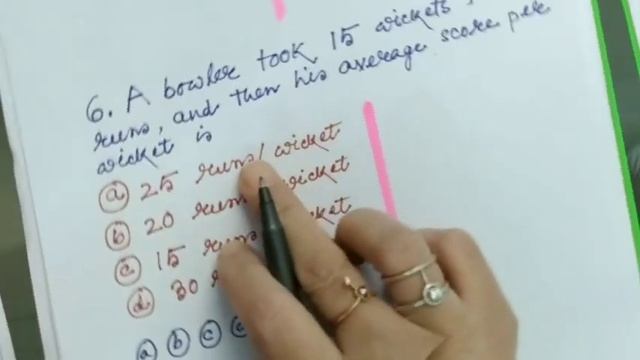 6. A bowler took 15 wickets
runs, and then his average score per
wicket is
ⓐ 25 runs/wicket
ⓑ 20 runs wicket
ⓒ 15 runs wicket
ⓓ 30
ⓐ ⓑ ⓒ